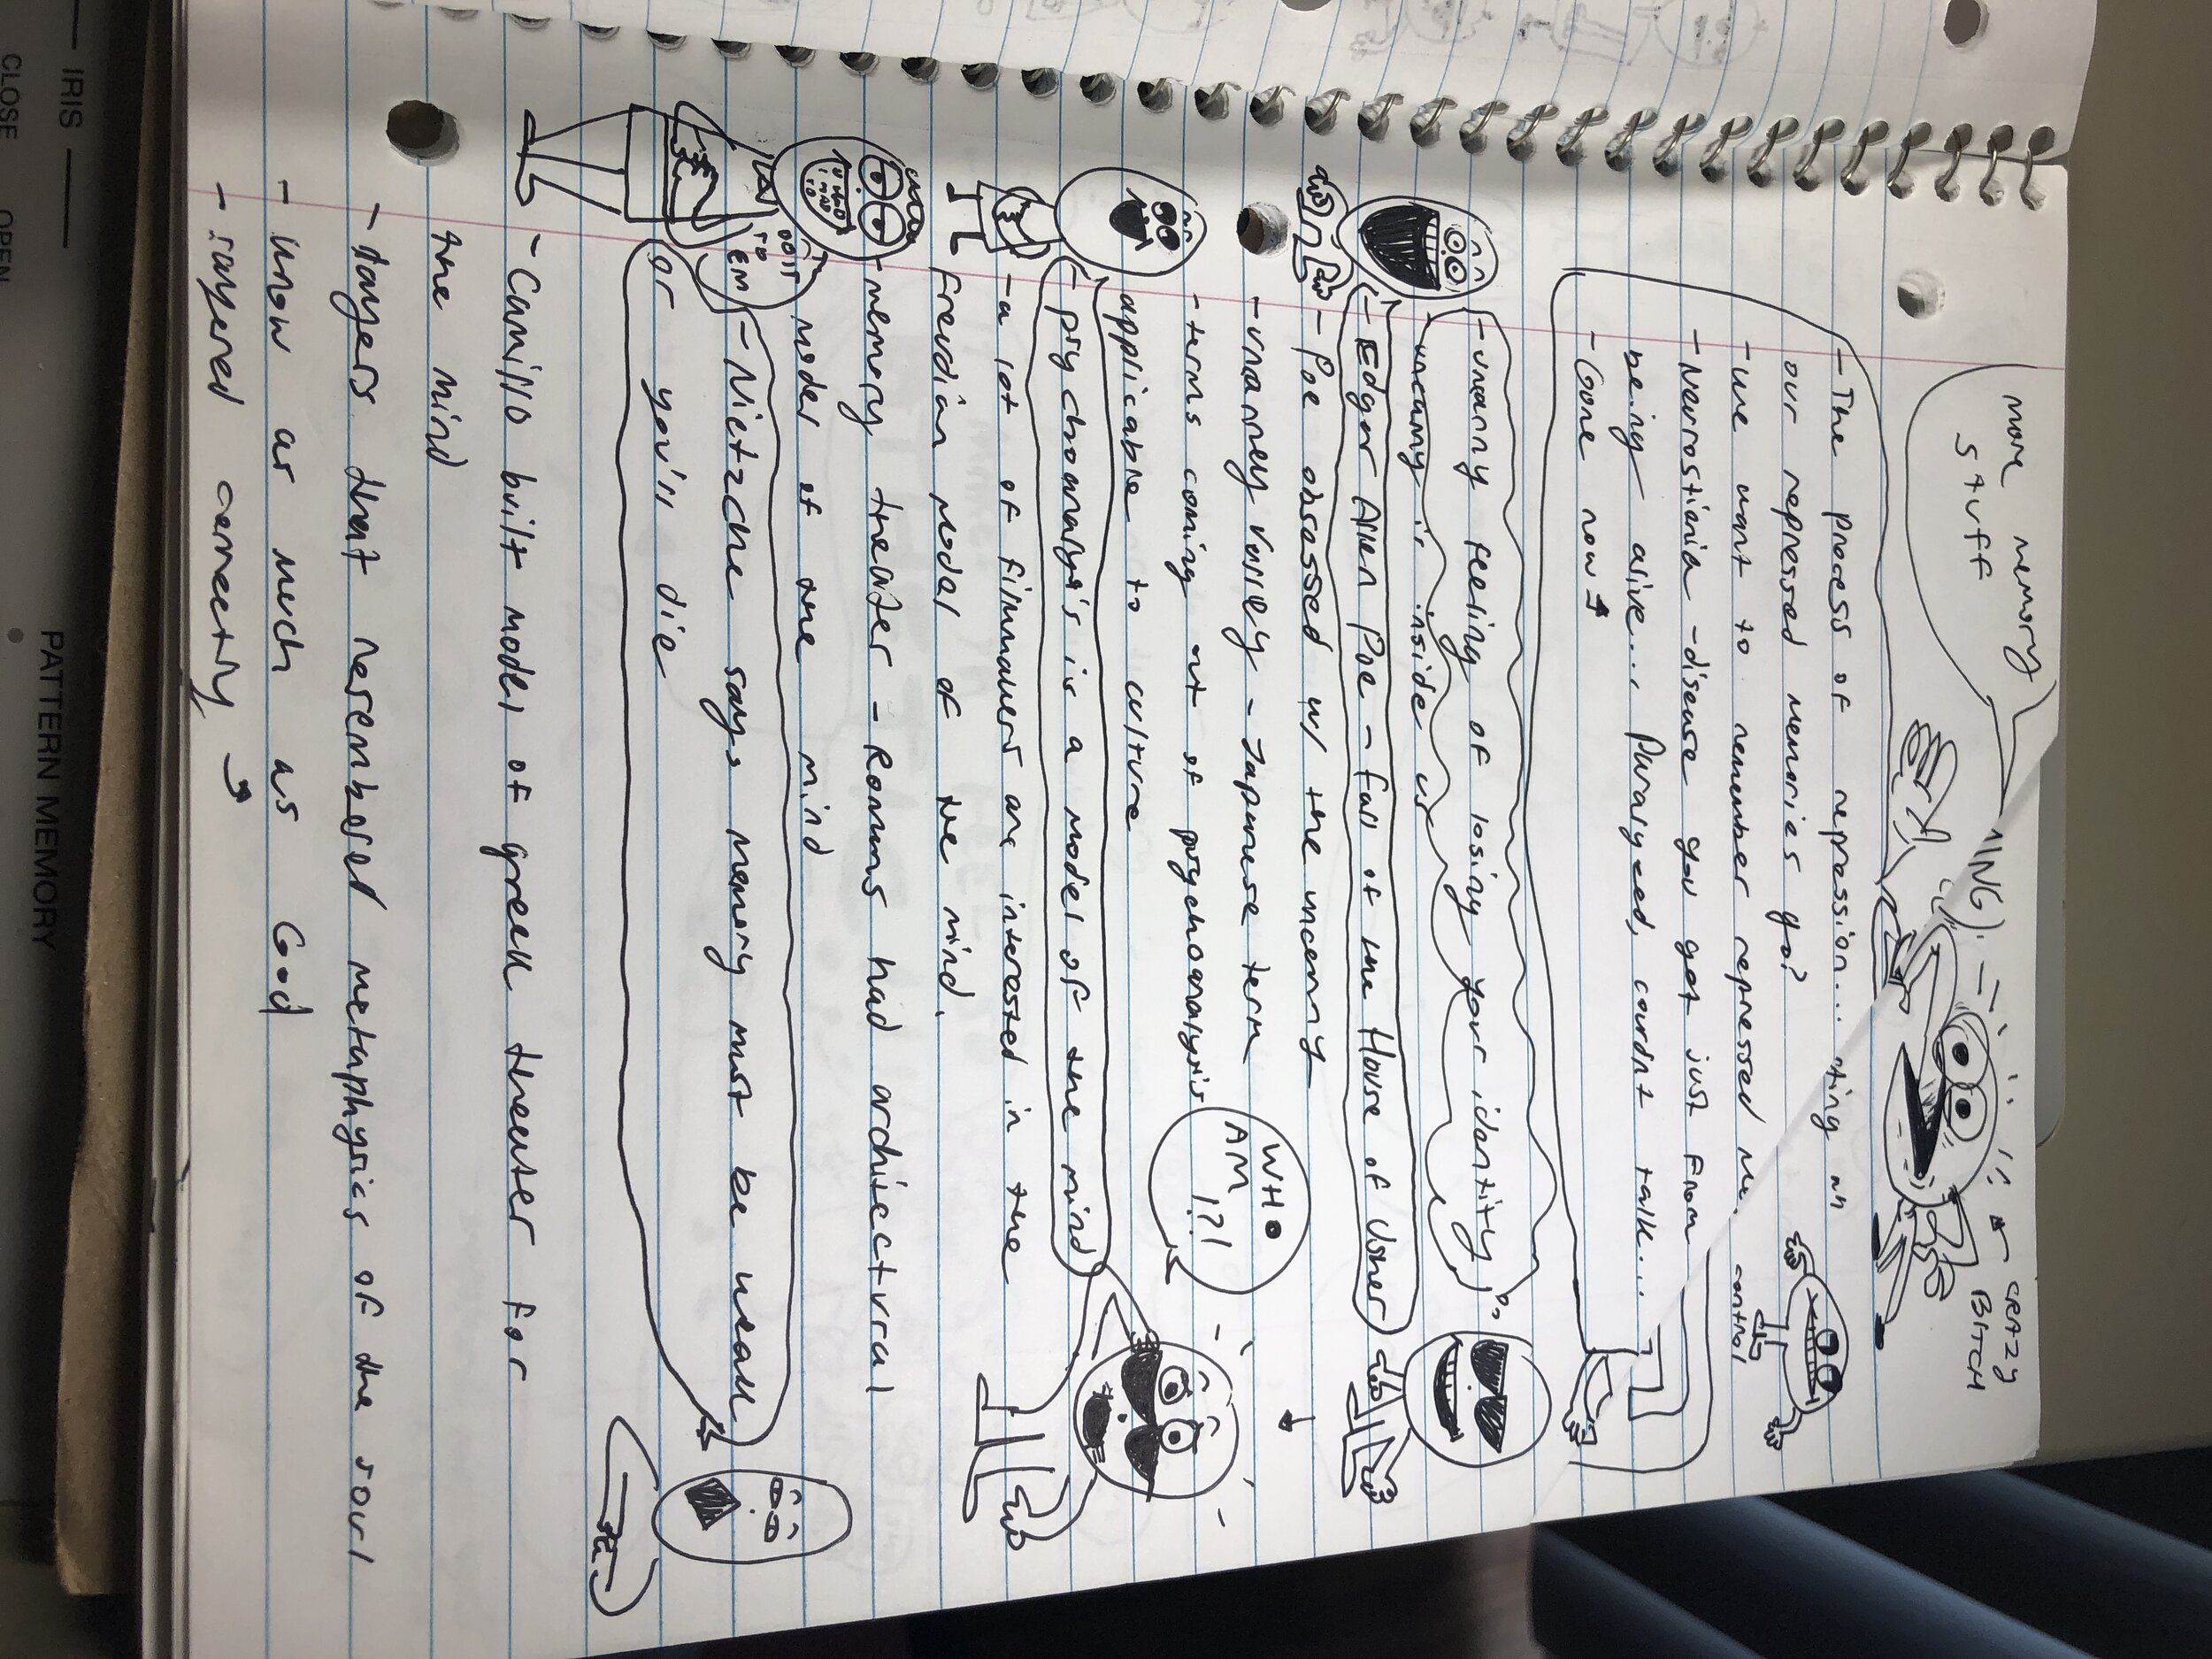 more memory
stuff
MING)
CRAZY
BITCH
- The process of repression... ting in
our repressed memories go?
- we want to remember repressed
control
- Neurostienia - disease you got just from
being alive... Paralyzed, couldnt talk...
- Gone now
- unanny feeling of losing your identity
uncanny is inside us
- Edger Allen Poe - fall of the House of Usher
- Poe obsessed w/ the uncanny
- unanney valley - Japanese term
- terms coming out of psychoanalysis
applicable to culture
WHO
AM
I?!
- psychoanalysis is a model of the mind
- a lot of filmmakers are interested in the
freudian model of the mind.
- memory theater - Romans had architectural
model of the mind
DOIT
TO
EM
- Nietzche says memory must be weak
or you'll die
- Camillo built model of greek theater for
the mind
- dangers that resembled metaphysics of the soul
- know as much as God
- layered
IRIS
CLOSE OPEN
PATTERN MEMORY